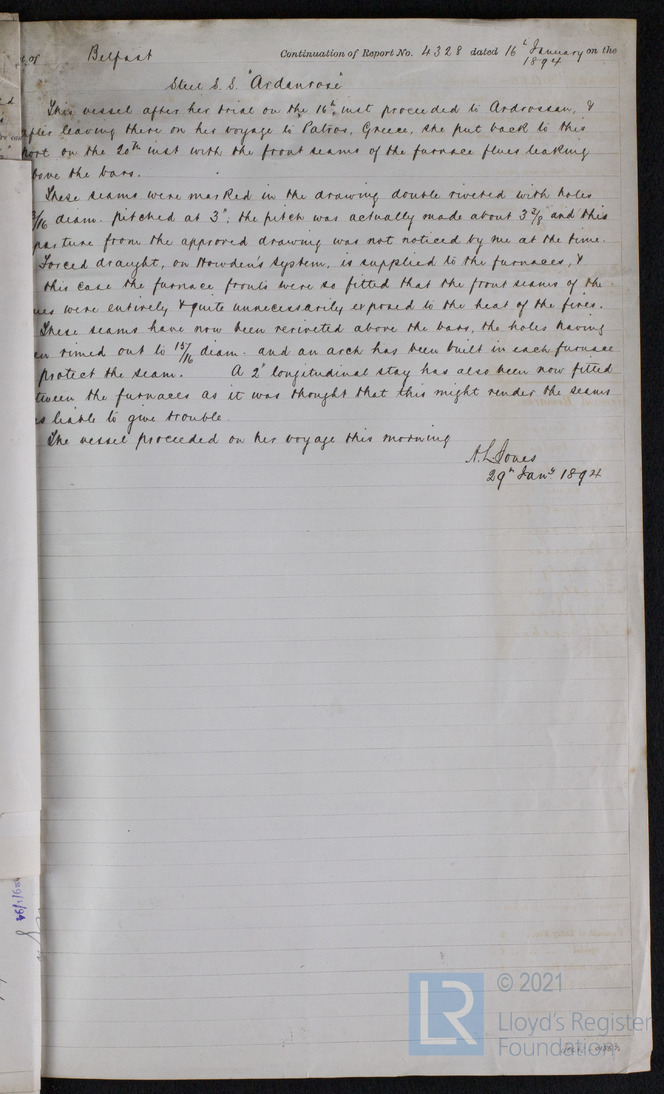 of Belfast Continuation of Report No. 4328 dated 16th January on the
1894
Steel S.S. "Ardanrose"
This vessel after her trial on the 16th inst proceeded to Ardrossan, &
after leaving there on her voyage to Patras, Greece, she put back to this
port on the 20th inst with the front seams of the furnace flues leaking
bove the bars.
These seams were marked in the drawing double riveted with holes
3/16 diam. pitched at 3"; the pitch was actually made about 3 3/8" and this
parture from the approved drawing was not noticed by me at the time.
Forced draught, on Howden's system, is supplied to the furnaces, &
this case the furnace fronts were so fitted that the front seams of the
ues were entirely & quite unnecessarily exposed to the heat of the fires.
These seams have now been reriveted above the bars, the holes having
en rimed out to 15/16 diam. and an arch has been built in each furnace
protect the seam. A 2" longitudinal stay has also been now fitted
tween the furnaces as it was thought that this might render the seams
s liable to give trouble.
The vessel proceeded on her voyage this morning
A.L. Jones
29th Jany 1894
LR © 2021
Lloyd's Register
Foundation